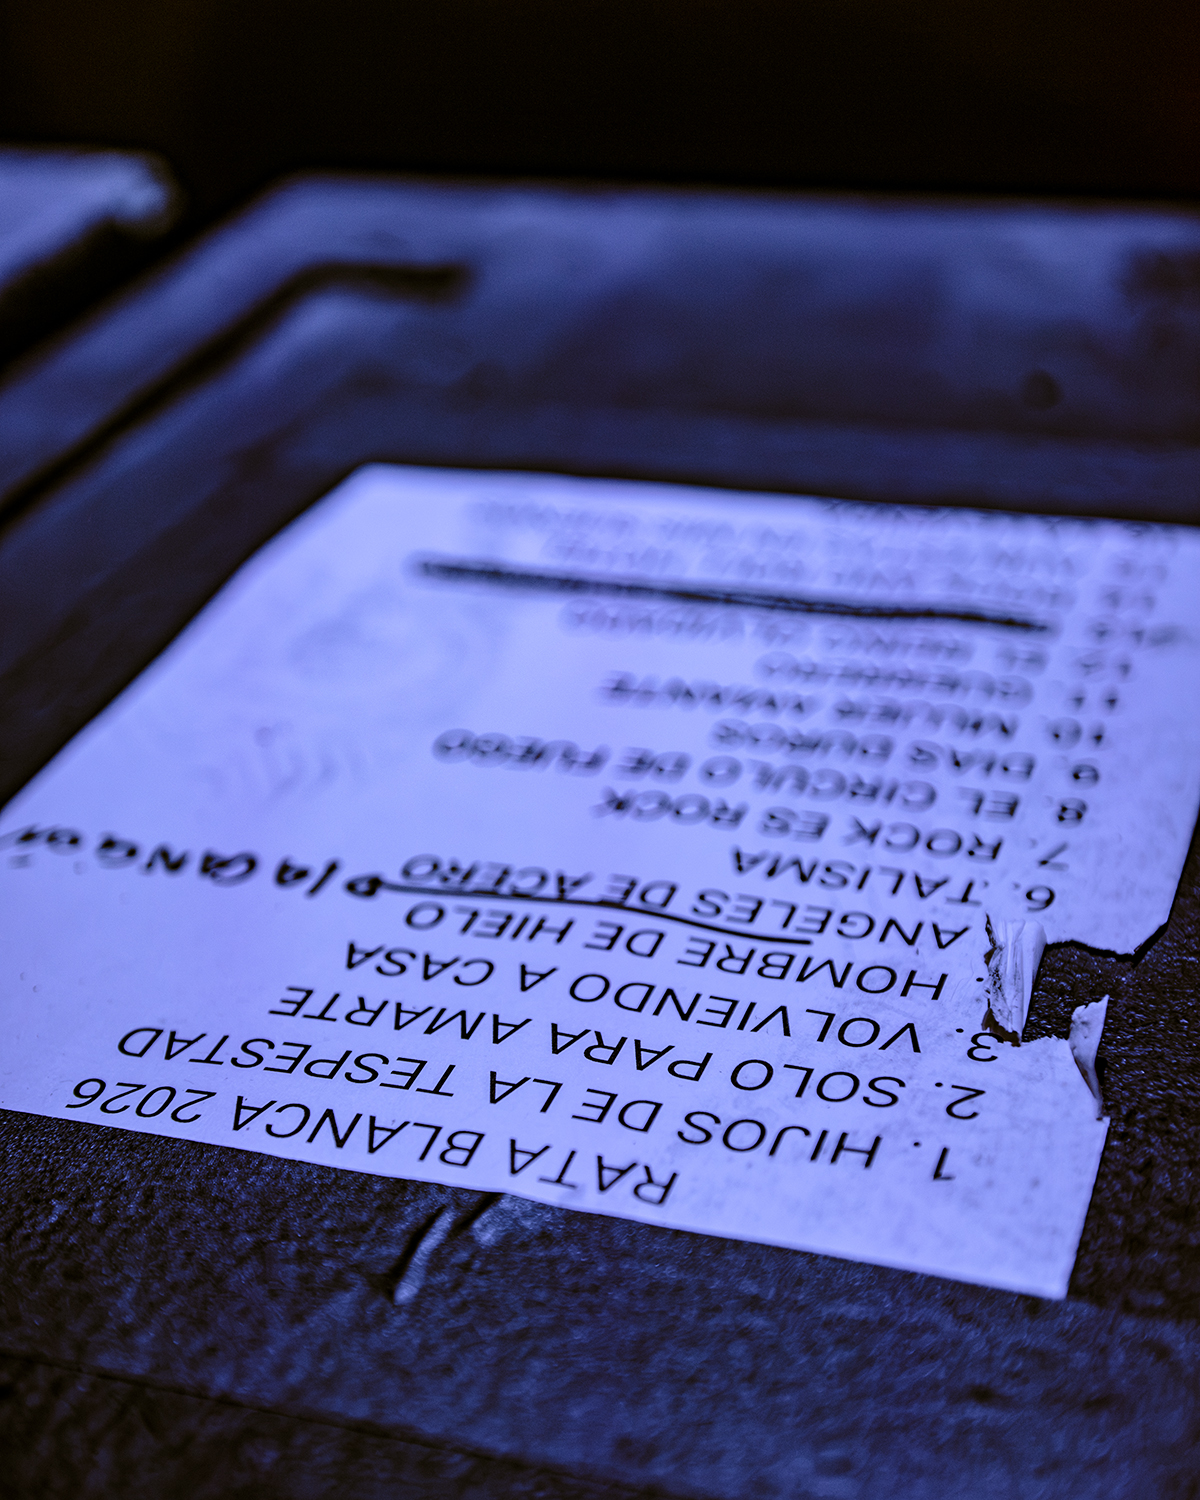 RATA BLANCA 2026
1. HIJOS DE LA TESPESTAD
2. SOLO PARA AMARTE
3. VOLVIENDO A CASA
HOMBRE DE HIELO
ANGELES DE ACERO
6. TALISMA
7. ROCK ES ROCK
8. EL CIRCULO DE FUEGO
9. DIAS DUROS
10. MUJER AMANTE
11. GUERRERO
12. EL REINO OLVIDADO